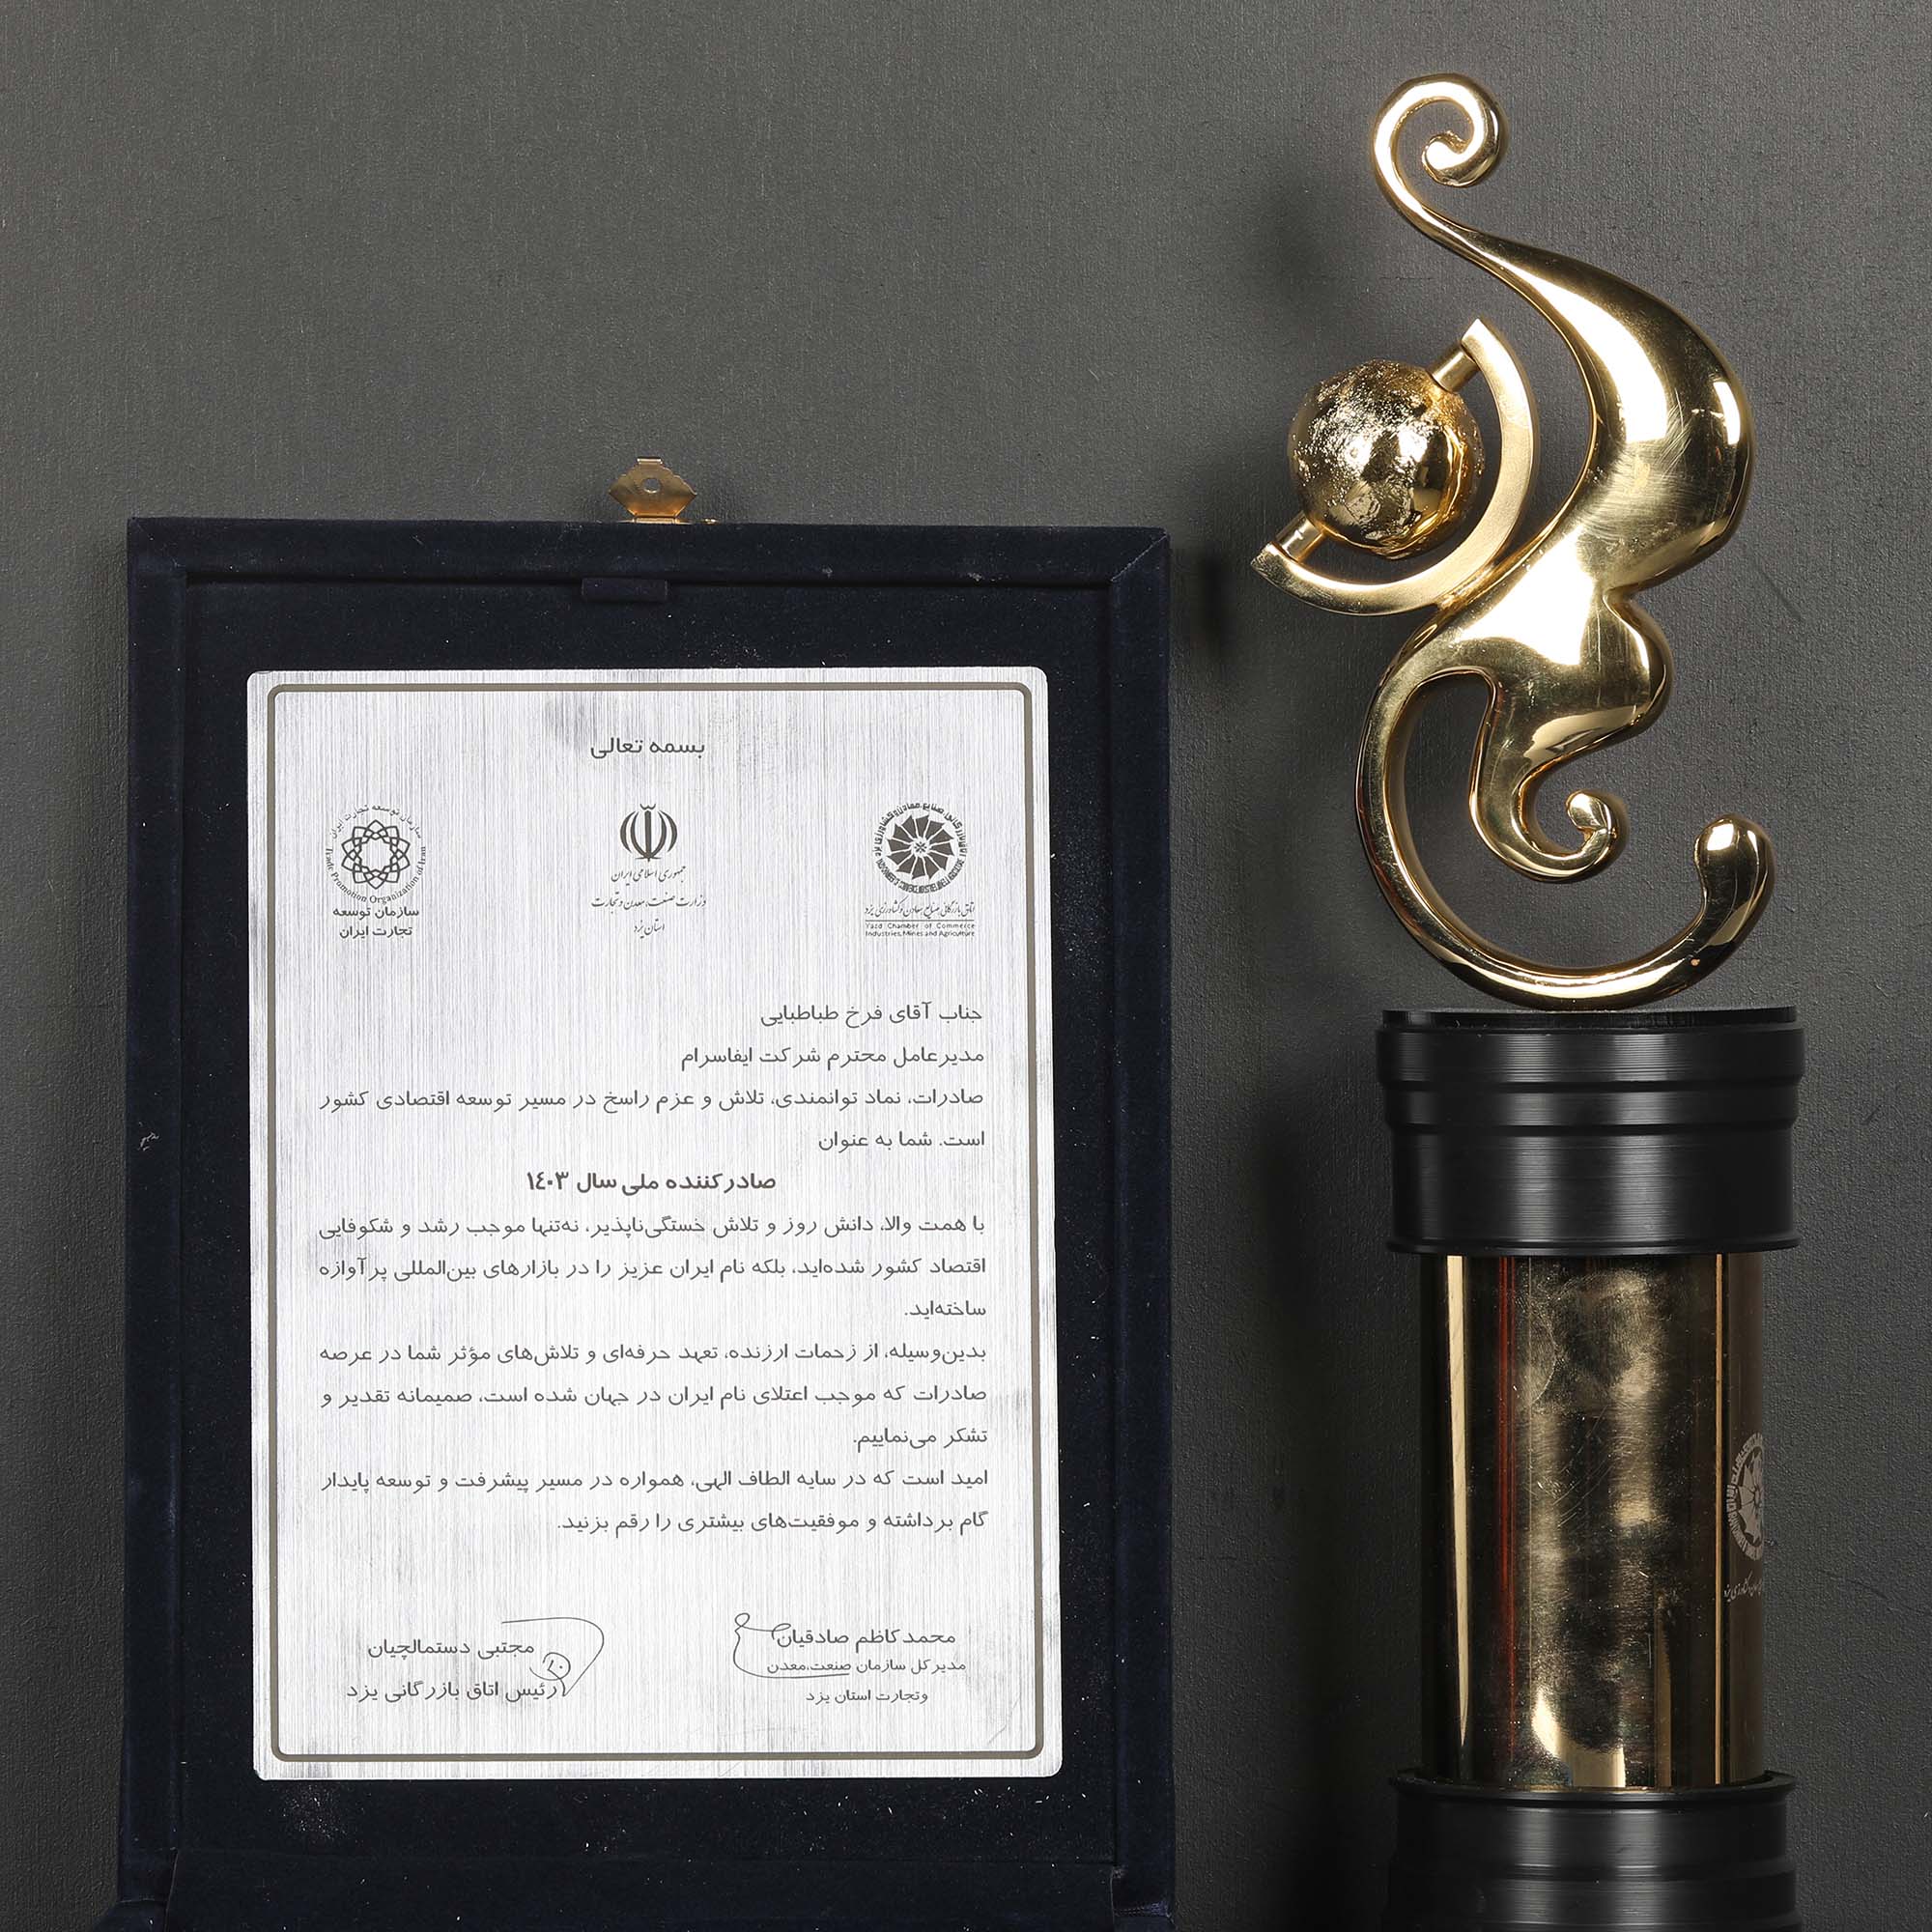 بسمه تعالی
سازمان توسعه تجارت ایران
Trade Promotion Organization of Iran
سازمان توسعه
تجارت ایران
جمهوری اسلامی ایران
وزارت صنعت، معدن و تجارت
استان یزد
اتاق بازرگانی، صنایع، معادن و کشاورزی یزد
Yazd Chamber of Commerce
Industries, Mines and Agriculture
جناب آقای فرخ طباطبایی
مدیرعامل محترم شرکت ایفاسرام
صادرات، نماد توانمندی، تلاش و عزم راسخ در مسیر توسعه اقتصادی کشور
است. شما به عنوان
صادرکننده ملی سال ۱٤۰۳
با همت والا، دانش روز و تلاش خستگی‌ناپذیر، نه‌تنها موجب رشد و شکوفایی
اقتصاد کشور شده‌اید، بلکه نام ایران عزیز را در بازارهای بین‌المللی پرآوازه
ساخته‌اید.
بدین‌وسیله، از زحمات ارزنده، تعهد حرفه‌ای و تلاش‌های مؤثر شما در عرصه
صادرات که موجب اعتلای نام ایران در جهان شده است، صمیمانه تقدیر و
تشکر می‌نماییم.
امید است که در سایه الطاف الهی، همواره در مسیر پیشرفت و توسعه پایدار
گام برداشته و موفقیت‌های بیشتری را رقم بزنید.
محمدکاظم صادقیان
مدیرکل سازمان صنعت،معدن
وتجارت استان یزد
مجتبی دستمالچیان
رئیس اتاق بازرگانی یزد